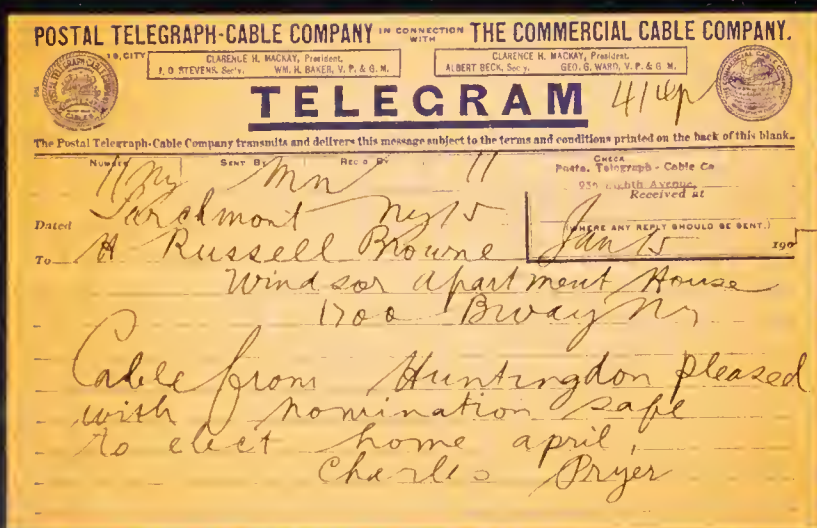 POSTAL TELEGRAPH-CABLE COMPANY IN CONNECTION WITH THE COMMERCIAL CABLE COMPANY.
CLARENCE H. MACKAY, President.
J. O. STEVENS, Sec'y. WM. H. BAKER, V. P. & G. M.
CLARENCE H. MACKAY, President.
ALBERT BECK, Sec'y. GEO. G. WARD, V. P. & G. M.
TELEGRAM
The Postal Telegraph-Cable Company transmits and delivers this message subject to the terms and conditions printed on the back of this blank.
NUMBER SENT BY REC'D BY CHECK
11 Ny Mn 11
Postal Telegraph - Cable Co
Eighth Avenue,
Received at
(WHERE ANY REPLY SHOULD BE SENT.)
Dated Larchmont Ny 15 Jan 15 190
To H Russell Browne
Windsor Apartment House
1700 Bway Ny
Cable from Huntingdon pleased
with nomination safe
to elect home april,
Charles Pryer